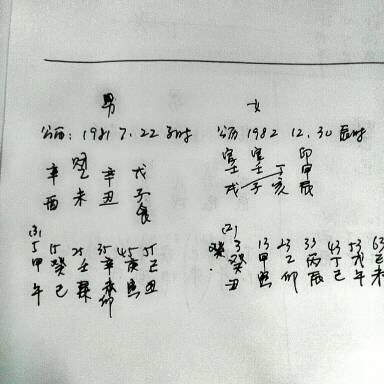 男
公历: 1981 7. 22 子时
辛 辛 戊
酉 未 丑 子
5 15 25 35 45 55
甲 癸 壬 辛 庚 己
午 巳 卯 丑
女
公历 1982 12. 30 辰时
官 官 印
壬 壬 丁 甲
戌 子 亥 辰
3 13 23 33 43 53 63
癸 甲 乙 丙 丁 戊 己
丑 卯 辰 巳 午 未